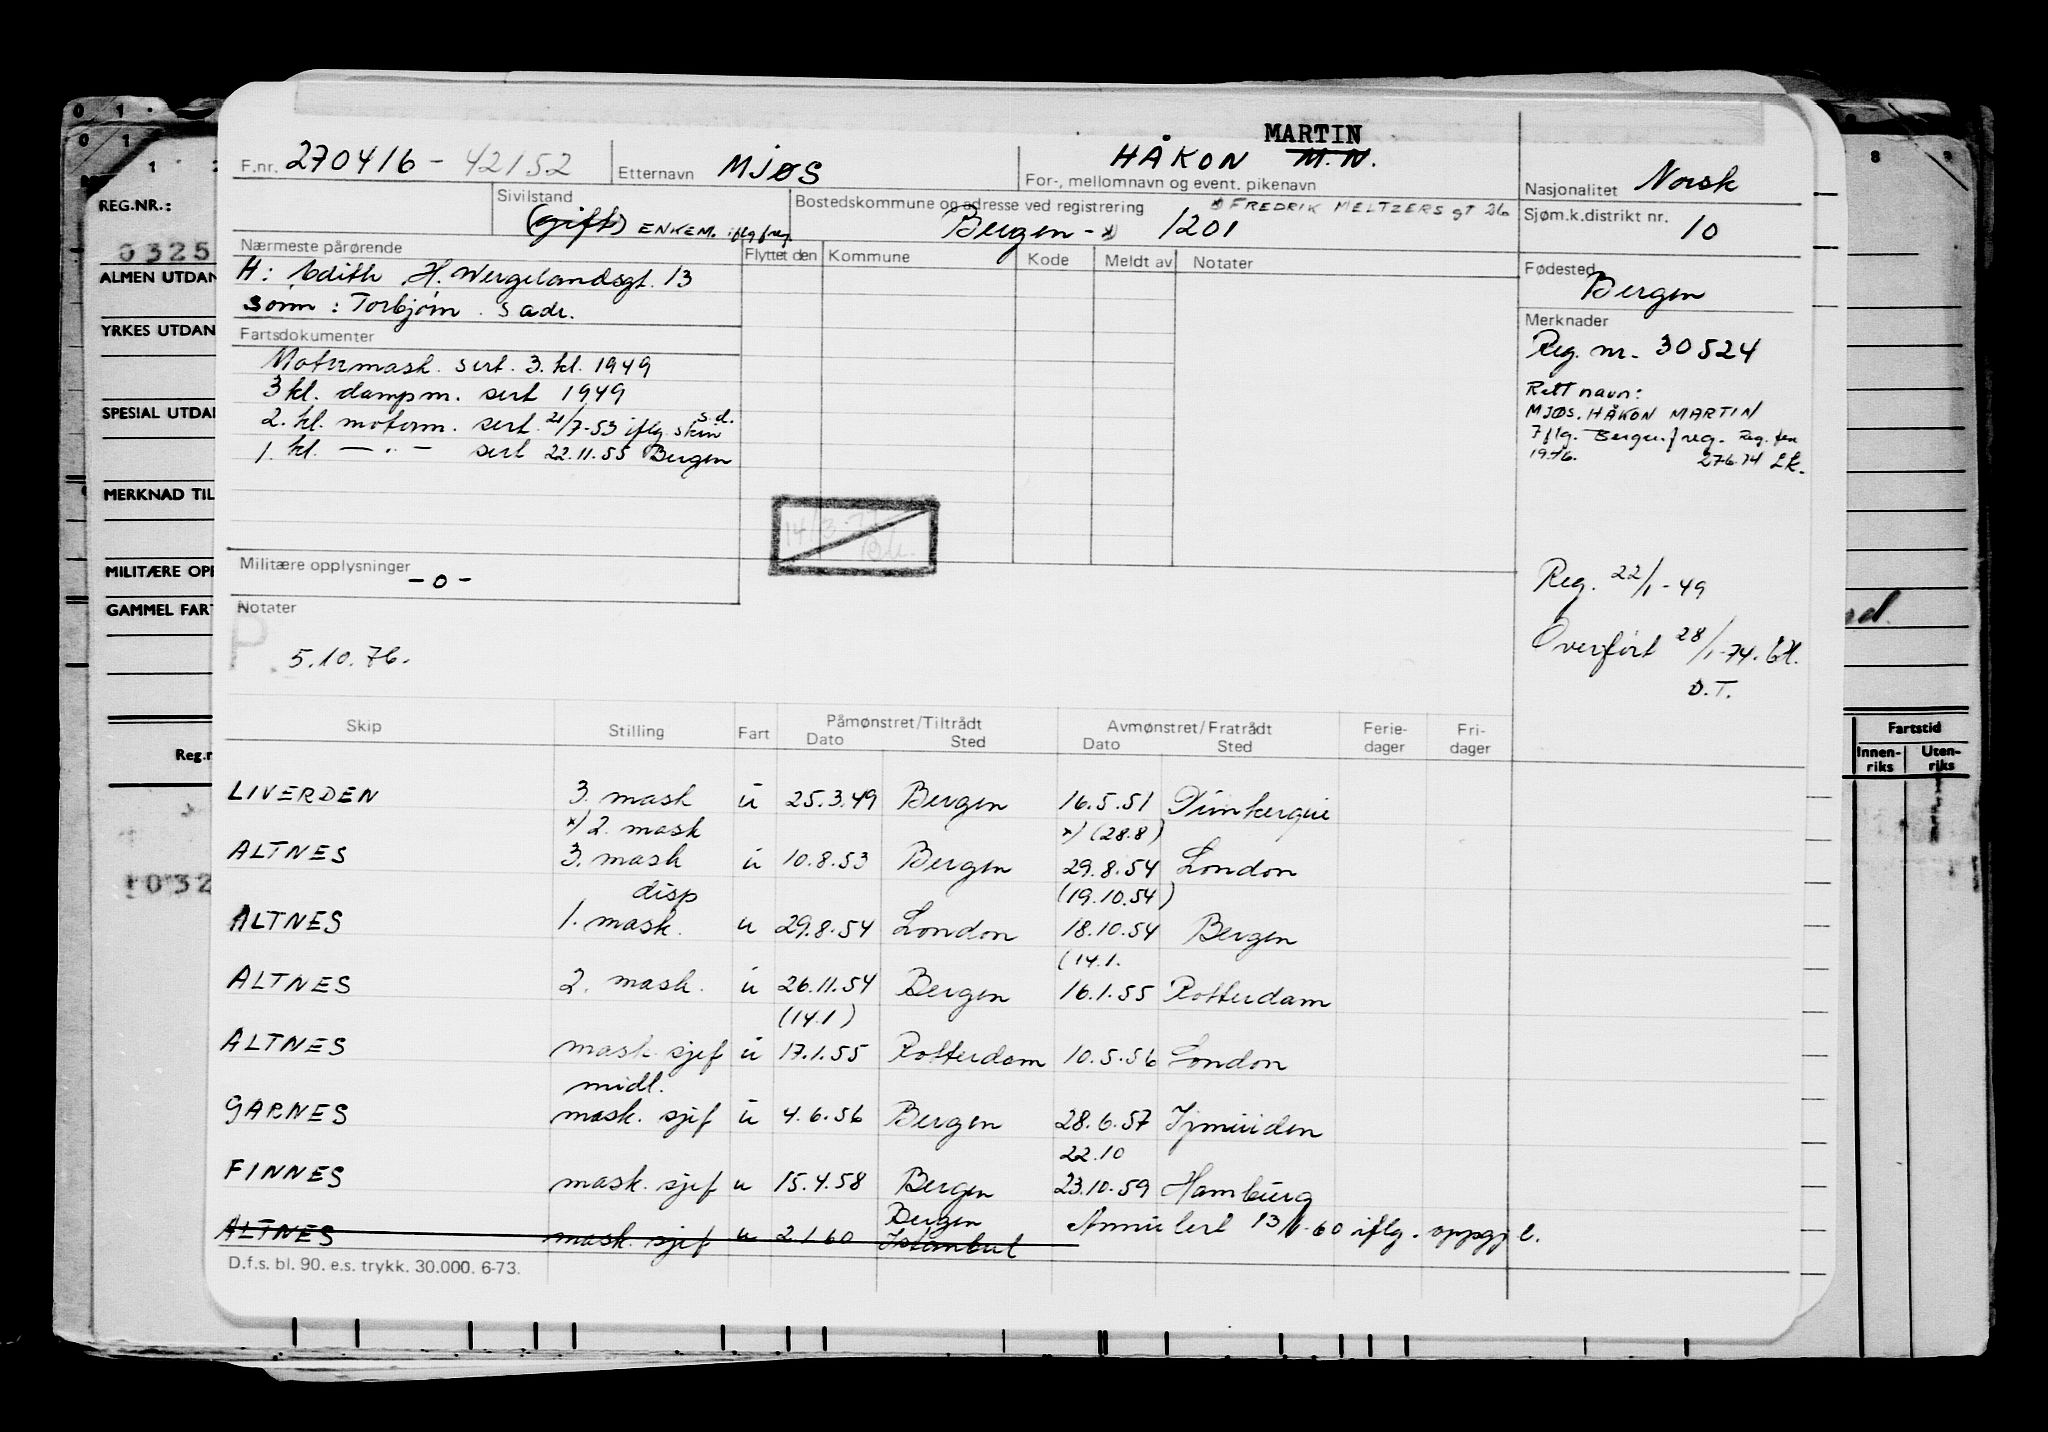 MARTIN
F.nr. 270416 - 42152 Etternavn MJØS HÅKON M.N.
For-, mellomnavn og event. pikenavn
Nasjonalitet Norsk
Sivilstand (gift) ENKEM. iflg freg.
Bostedskommune og adresse ved registrering x FREDRIK MELTZERS GT 26
Bergen - x) 1201
Sjøm.k.distrikt nr. 10
Nærmeste pårørende
H: Edith H. Wergelandsgt. 13
Sønn: Torbjørn s adr.
Flyttet den Kommune Kode Meldt av Notater
Fødested Bergen
Merknader
Reg. nr. 30524
Rett navn:
MJØS. HÅKON MARTIN
Iflg. Bergen freg. Reg. fen
1976. 276.74 LK.
Fartsdokumenter
Motormask. sert. 3. kl. 1949
3 kl. dampm. sert 1949
2. kl. motorm. sert. 21/7-53 iflg. skin s.d.
1. kl. — " — sert 22.11.55 Bergen
Militære opplysninger -0-
Reg. 22/1-49
Overført 28/1-74.
D.T.
Notater
P. 5.10.76.
Skip Stilling Fart Påmønstret/Tiltrådt Avmønstret/Fratrådt Ferie- Fri-
Dato Sted Dato Sted dager dager
LIVERDEN 3. mask u 25.3.49 Bergen 16.5.51 Dunkerque
x) 2. mask x) (28.8)
ALTNES 3. mask u 10.8.53 Bergen 29.8.54 London
disp (19.10.54)
ALTNES 1. mask. u 29.8.54 London 18.10.54 Bergen
(14.1.
ALTNES 2. mask. u 26.11.54 Bergen 16.1.55 Rotterdam
(14.1)
ALTNES mask. sjef u 17.1.55 Rotterdam 10.5.56 London
midl.
GARNES mask. sjef u 4.6.56 Bergen 28.6.57 Ijmuiden
22.10
FINNES mask. sjef u 15.4.58 Bergen 23.10.59 Hamburg
Bergen
ALTNES mask. sjef u 2 1 60 Istanbul Annulert 13/1-60 iflg. oppgj.l.
D.f.s. bl. 90. e.s. trykk. 30.000. 6-73.
REG.NR.:
0325
ALMEN UTDAN
YRKES UTDAN
SPESIAL UTDA
MERKNAD TIL
MILITÆRE OPP
GAMMEL FAR
Reg.n
1032
Fartstid
Innen-riks Uten-riks